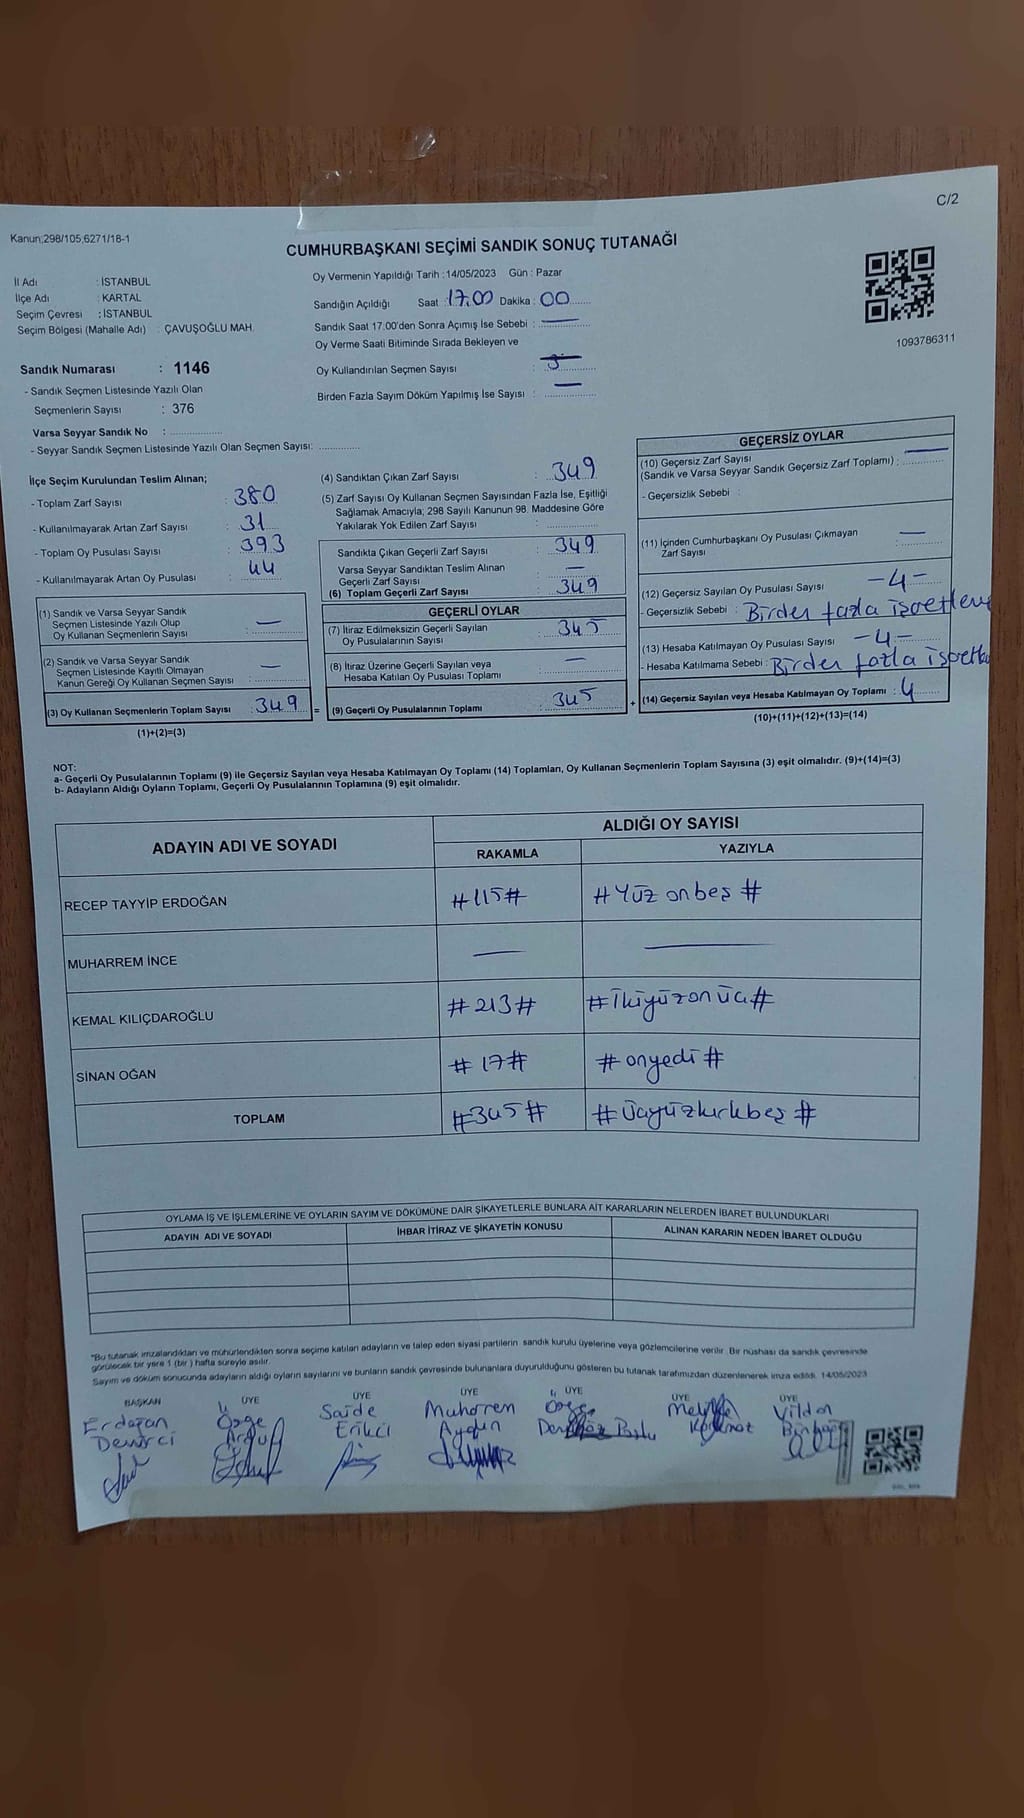 C/2
Kanun;298/105,6271/18-1
CUMHURBAŞKANI SEÇİMİ SANDIK SONUÇ TUTANAĞI
İl Adı : İSTANBUL
İlçe Adı : KARTAL
Seçim Çevresi : İSTANBUL
Seçim Bölgesi (Mahalle Adı) : ÇAVUŞOĞLU MAH.
Sandık Numarası : 1146
- Sandık Seçmen Listesinde Yazılı Olan
Seçmenlerin Sayısı : 376
Varsa Seyyar Sandık No :
- Seyyar Sandık Seçmen Listesinde Yazılı Olan Seçmen Sayısı:
Oy Vermenin Yapıldığı Tarih :14/05/2023 Gün : Pazar
Sandığın Açıldığı Saat : 17.00 Dakika : 00
Sandık Saat 17:00'den Sonra Açımış İse Sebebi : —
Oy Verme Saati Bitiminde Sırada Bekleyen ve
Oy Kullandırılan Seçmen Sayısı :
Birden Fazla Sayım Döküm Yapılmış İse Sayısı : —
1093786311
İlçe Seçim Kurulundan Teslim Alınan;
- Toplam Zarf Sayısı : 380
- Kullanılmayarak Artan Zarf Sayısı : 31
- Toplam Oy Pusulası Sayısı : 393
- Kullanılmayarak Artan Oy Pusulası : 44
(1) Sandık ve Varsa Seyyar Sandık
Seçmen Listesinde Yazılı Olup
Oy Kullanan Seçmenlerin Sayısı : —
(2) Sandık ve Varsa Seyyar Sandık
Seçmen Listesinde Kayıtlı Olmayan
Kanun Gereği Oy Kullanan Seçmen Sayısı : —
(3) Oy Kullanan Seçmenlerin Toplam Sayısı : 349 =
(1)+(2)=(3)
(4) Sandıktan Çıkan Zarf Sayısı : 349
(5) Zarf Sayısı Oy Kullanan Seçmen Sayısından Fazla İse, Eşitliği
Sağlamak Amacıyla; 298 Sayılı Kanunun 98. Maddesine Göre
Yakılarak Yok Edilen Zarf Sayısı :
Sandıkta Çıkan Geçerli Zarf Sayısı : 349
Varsa Seyyar Sandıktan Teslim Alınan
Geçerli Zarf Sayısı : —
(6) Toplam Geçerli Zarf Sayısı : 349
GEÇERLİ OYLAR
(7) İtiraz Edilmeksizin Geçerli Sayılan
Oy Pusulalarının Sayısı : 345
(8) İtiraz Üzerine Geçerli Sayılan veya
Hesaba Katılan Oy Pusulası Toplamı : —
(9) Geçerli Oy Pusulalarının Toplamı : 345 +
GEÇERSİZ OYLAR
(10) Geçersiz Zarf Sayısı
(Sandık ve Varsa Seyyar Sandık Geçersiz Zarf Toplamı) : —
- Geçersizlik Sebebi :
(11) İçinden Cumhurbaşkanı Oy Pusulası Çıkmayan
Zarf Sayısı : —
(12) Geçersiz Sayılan Oy Pusulası Sayısı : -4-
- Geçersizlik Sebebi : Birden fazla
(13) Hesaba Katılmayan Oy Pusulası Sayısı : -4-
- Hesaba Katılmama Sebebi : Birden fazla
(14) Geçersiz Sayılan veya Hesaba Katılmayan Oy Toplamı : 4
(10)+(11)+(12)+(13)=(14)
NOT:
a- Geçerli Oy Pusulalarının Toplamı (9) ile Geçersiz Sayılan veya Hesaba Katılmayan Oy Toplamı (14) Toplamları, Oy Kullanan Seçmenlerin Toplam Sayısına (3) eşit olmalıdır. (9)+(14)=(3)
b- Adayların Aldığı Oyların Toplamı, Geçerli Oy Pusulalarının Toplamına (9) eşit olmalıdır.
ADAYIN ADI VE SOYADI ALDIĞI OY SAYISI
RAKAMLA YAZIYLA
RECEP TAYYİP ERDOĞAN #115# #Yüz onbeş#
MUHARREM İNCE — —
KEMAL KILIÇDAROĞLU #213# #İkiyüzonüç#
SİNAN OĞAN #17# #onyedi#
TOPLAM #345# #Üçyüzkırkbeş#
OYLAMA İŞ VE İŞLEMLERİNE VE OYLARIN SAYIM VE DÖKÜMÜNE DAİR ŞİKAYETLERLE BUNLARA AİT KARARLARIN NELERDEN İBARET BULUNDUKLARI
ADAYIN ADI VE SOYADI İHBAR İTİRAZ VE ŞİKAYETİN KONUSU ALINAN KARARIN NEDEN İBARET OLDUĞU
"Bu tutanak imzalandıktan ve mühürlendikten sonra seçime katılan adayların ve talep eden siyasi partilerin sandık kurulu üyelerine veya gözlemcilerine verilir. Bir nüshası da sandık çevresinde
görülecek bir yere 1 (bir ) hafta süreyle asılır.
Sayım ve döküm sonucunda adayların aldığı oyların sayılarını ve bunların sandık çevresinde bulunanlara duyurulduğunu gösteren bu tutanak tarafımızdan düzenlenerek imza edildi. 14/05/2023
BAŞKAN ÜYE ÜYE ÜYE ÜYE ÜYE ÜYE
Erdoğan Özge Saide Muharrem Özge Vildan
Demirci Erikci Aydın